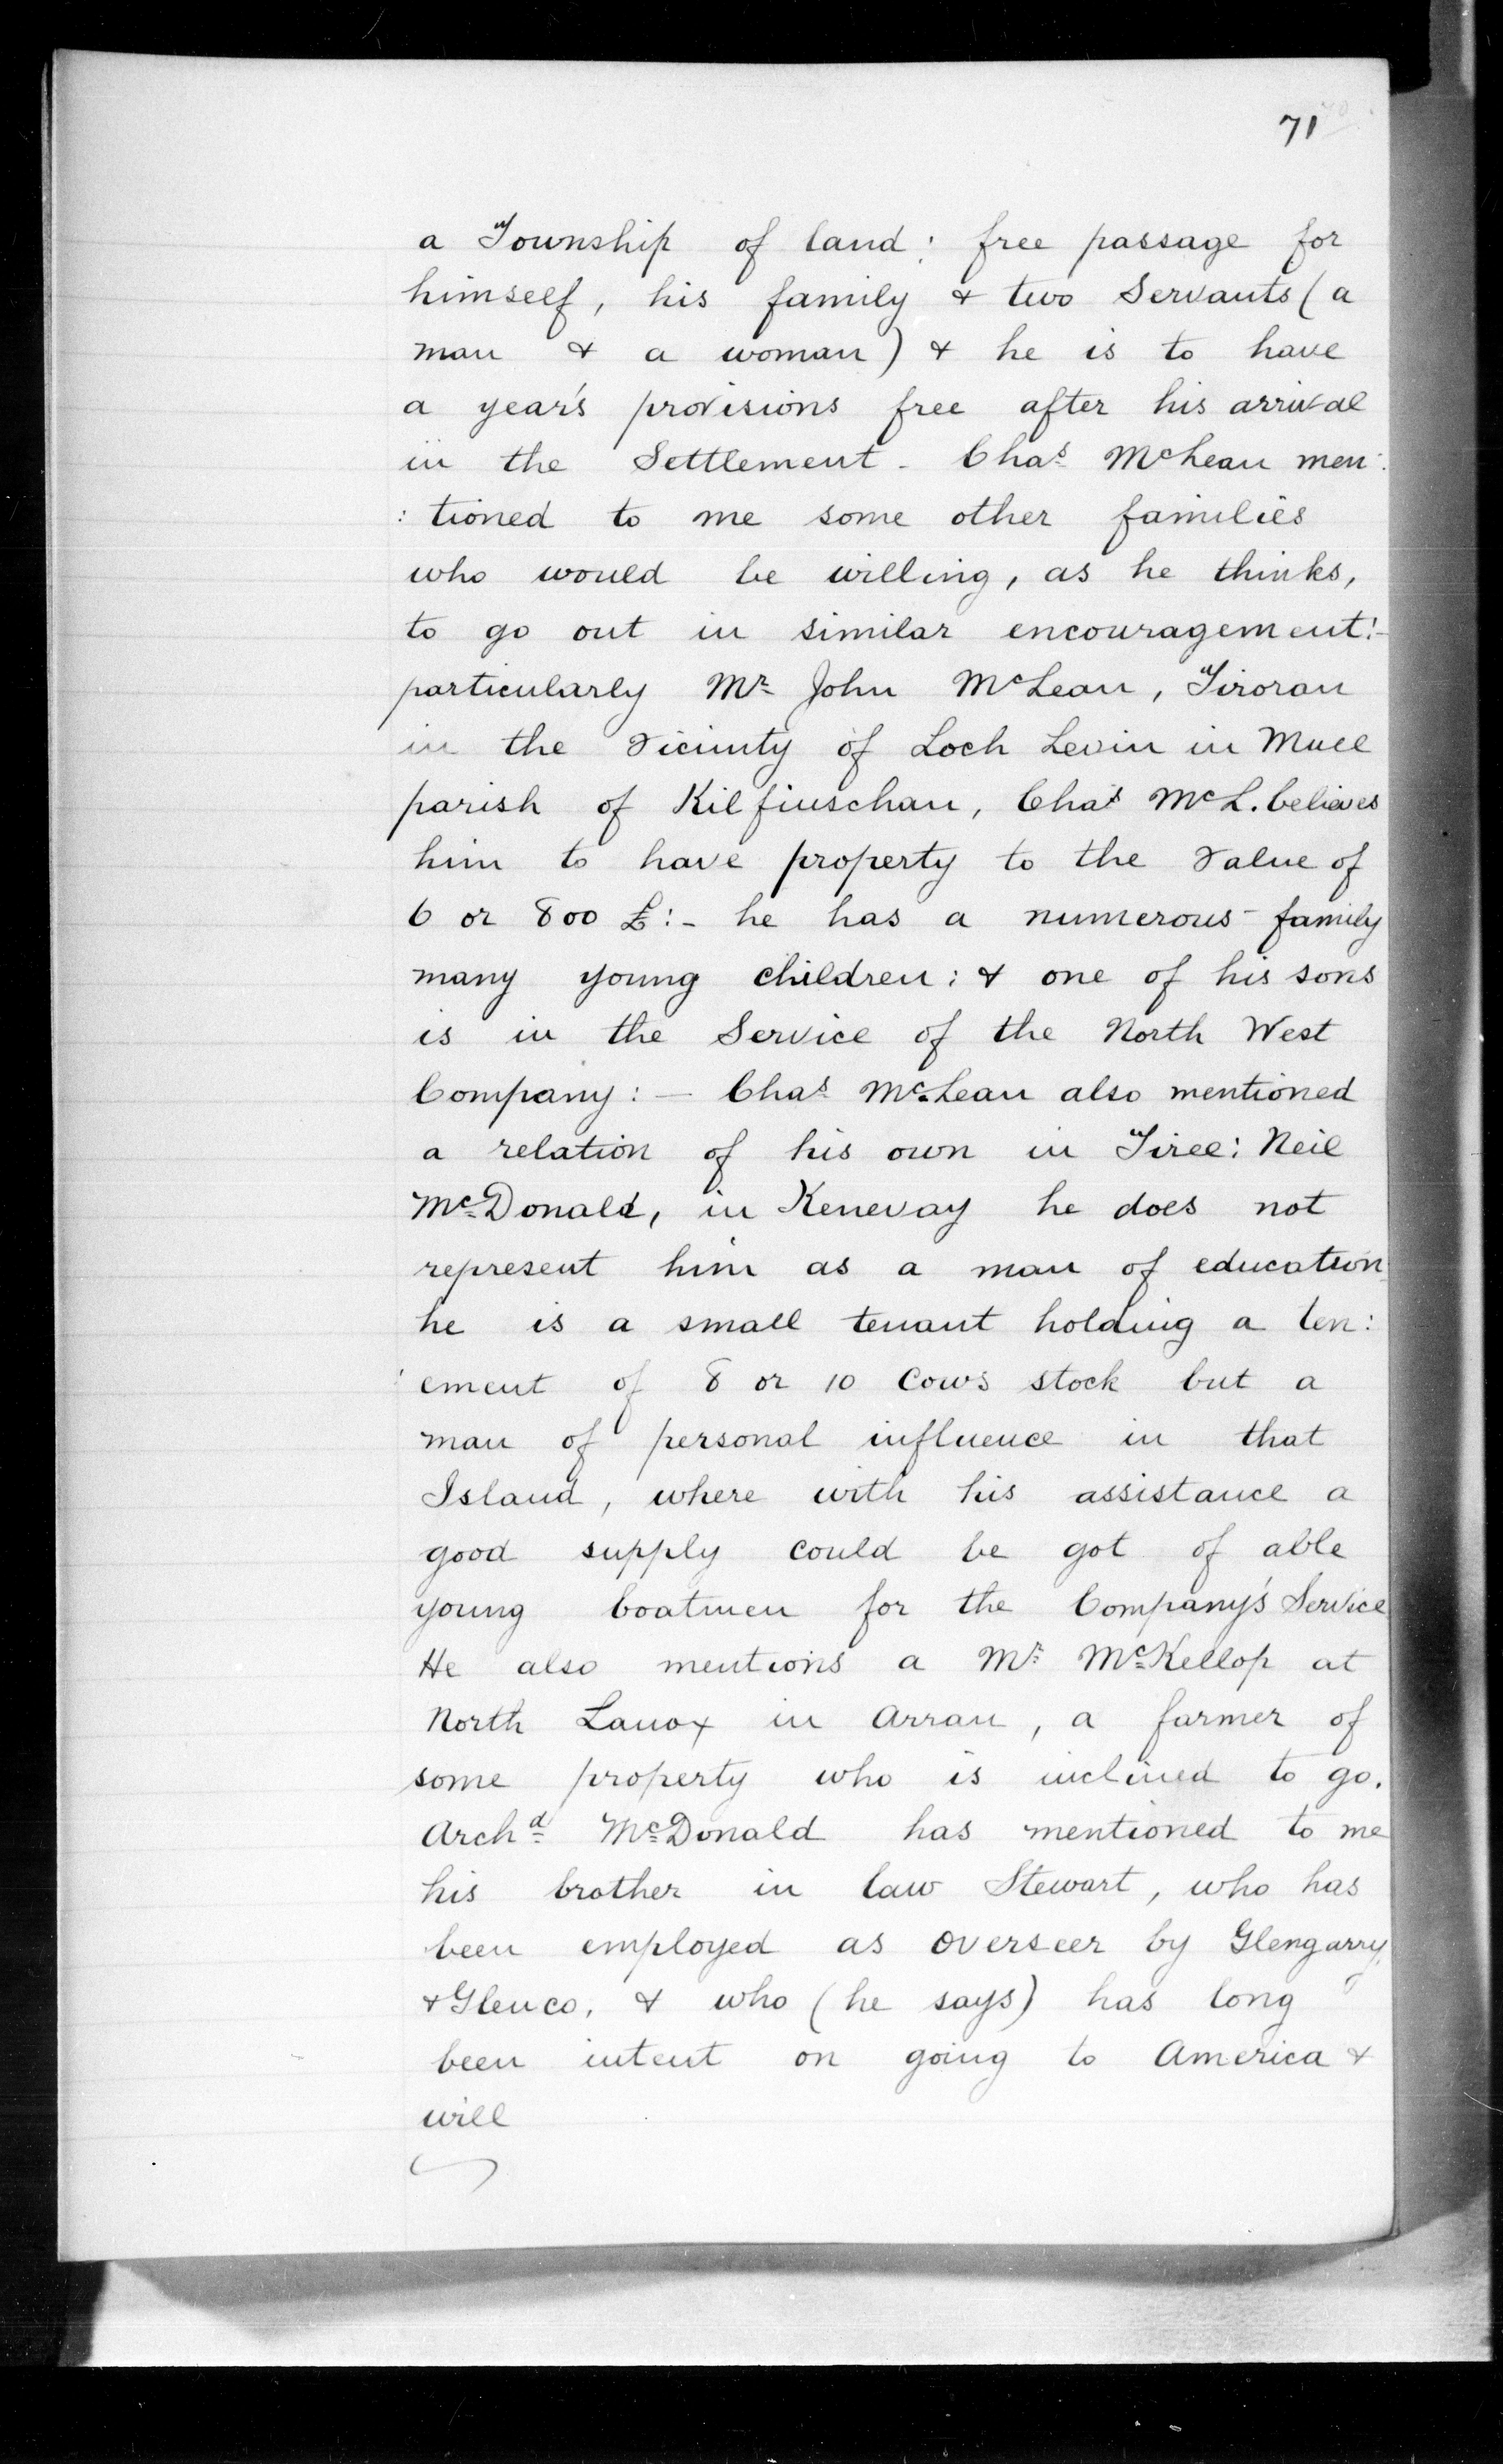 71
a Township of land: free passage for
himself, his family & two Servants (a
man & a woman) & he is to have
a year's provisions free after his arrival
in the Settlement - Chas McLean men:
: tioned to me some other families
who would be willing, as he thinks,
to go out in similar encouragement:-
particularly Mr John McLean, Tiroran
in the Vicinity of Loch Levin in Mull
parish of Kilfinschan, Chas McL. believes
him to have property to the Value of
6 or 800 £:- he has a numerous family
many young children: & one of his sons
is in the Service of the North West
Company: - Chas McLean also mentioned
a relation of his own in Tiree: Neil
McDonald, in Kenevay he does not
represent him as a man of education
he is a small tenant holding a ten:
: ement of 8 or 10 Cows stock but a
man of personal influence in that
Island, where with his assistance a
good supply could be got of able
young boatmen for the Company's Service
He also mentions a Mr McKellop at
North Lanox in Arran, a farmer of
some property who is inclined to go.
Archd McDonald has mentioned to me
his brother in law Stewart, who has
been employed as overseer by Glengarry,
& Glenco, & who (he says) has long
been intent on going to America &
will